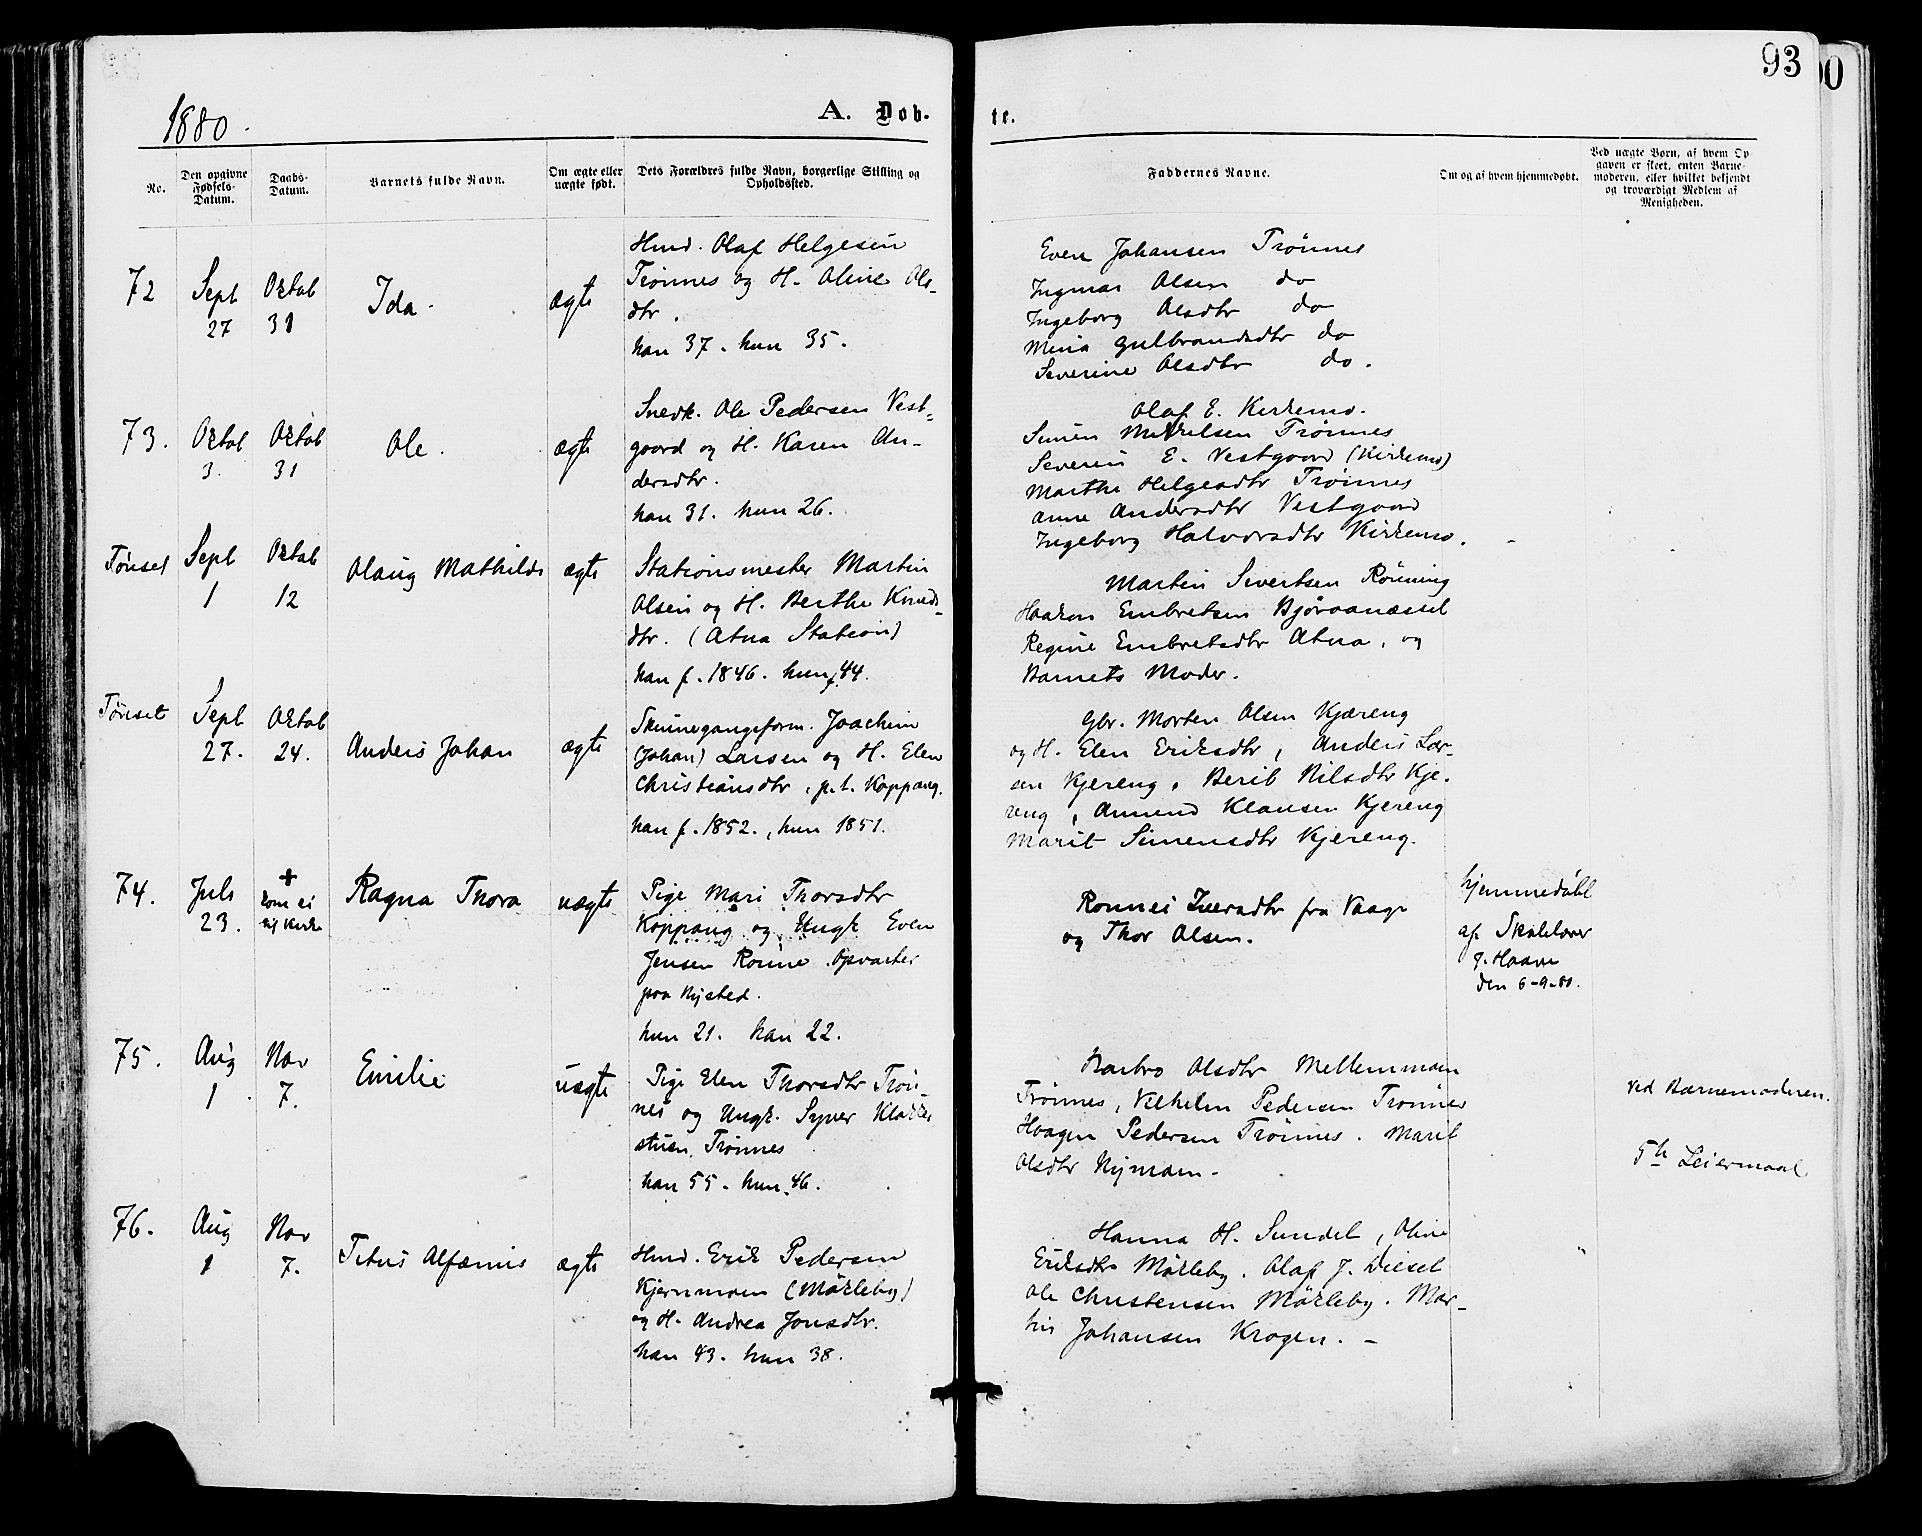 93
1880.
A. Døb-
te.
No.
Den opgivne
Fødsels-
Datum.
Daabs-
Datum.
Barnets fulde Navn.
Om ægte eller
uægte født.
Dets Forældres fulde Navn, borgerlige Stilling og
Opholdssted.
Faddernes Navne.
Om og af hvem hjemmedøbt.
Ved uægte Børn, af hvem Op-
gaven er skeet, enten Barne-
moderen, eller hvilket bekjendt
og troværdigt Medlem af
Menigheden.
72
Sept
27
Oktob
31
Ida.
ægte
Hmd. Olaf Helgesen
Trönnes og H. Oline Ols-
dtr.
han 37. hun 35.
Even Johansen Trönnes
Ingmar Olsen do
Ingeborg Olsdtr do
Mina Gulbrandsdtr do
Severine Olsdtr do.
73.
Oktob
3.
Oktob
31
Ole.
ægte
Snedk. Ole Pedersen Vest-
gaard og H. Karen An-
dersdtr.
han 31. hun 26.
Olaf E. Kirkemo.
Simen Mikkelsen Trönnes
Severin E. Vestgaard (Kirkemo)
Marthe Helgesdtr Trönnes
Anne Andersdtr Vestgaard
Ingeborg Halvorsdtr Kirkemo.
Tönset
Sept
1
Oktob
12
Olaug Mathilde
ægte
Stationsmester Martin
Olsen og H. Berthe Knuds-
dtr. (Atna Station)
han f. 1846. hun f. 44.
Martin Sivertsen Rönning
Haakon Embretsen Bjøraanæsset
Regine Embretsdtr Atna, og
Barnets Moder.
Tönset
Sept
27.
Oktob
24.
Anders Johan
ægte
Skinnegangsform. Joachim
(Johan) Larsen og H. Elen
Christiansdtr, p.t. Koppang.
han f. 1852., hun 1851.
Gbr. Morten Olsen Kjæreng
og H. Elen Eriksdtr, Anders Lar-
sen Kjereng, Berit Nilsdtr Kje-
reng, Amund Klausen Kjereng
Marit Simensdtr Kjereng.
74.
Juli
23.
+
kom ei
til Kirke
Ragna Thora
uægte
Pige Mari Thorsdtr
Koppang og Ungk Even
Jensen Ronne. Opvarter
paa Nysted.
hun 21. han 22.
Ronnei Iversdtr fra Vaage
og Thor Olsen.
hjemmedöbt
af Skolelærer
J. Haave
den 6-9-80.
75.
Aug
1
Nov
7.
Emilie
uægte
Pige Elen Thorsdtr Trön-
nes og Ungk. Syver Klokker
stuen, Trönnes
han 55. hun 46.
Barbro Olsdtr Mellemmoen
Trönnes, Vilhelm Pedersen Trönnes
Haagen Pedersen Trönnes. Marit
Olsdtr Nymoen.
ved Barnemoderen.
5te Leiermaal
76.
Aug
1
Nov
7.
Titus Alfænus
ægte
Hmd. Erik Pedersen
Kjernmoen (Mörkeby)
og H. Andrea Jonsdtr.
han 43. hun 38.
Hanna H. Sundet, Oline
Eriksdtr Mörkeby. Olaf J. Diesel
Ole Christensen Mörkeby. Mar-
tin Johansen Krogen. -